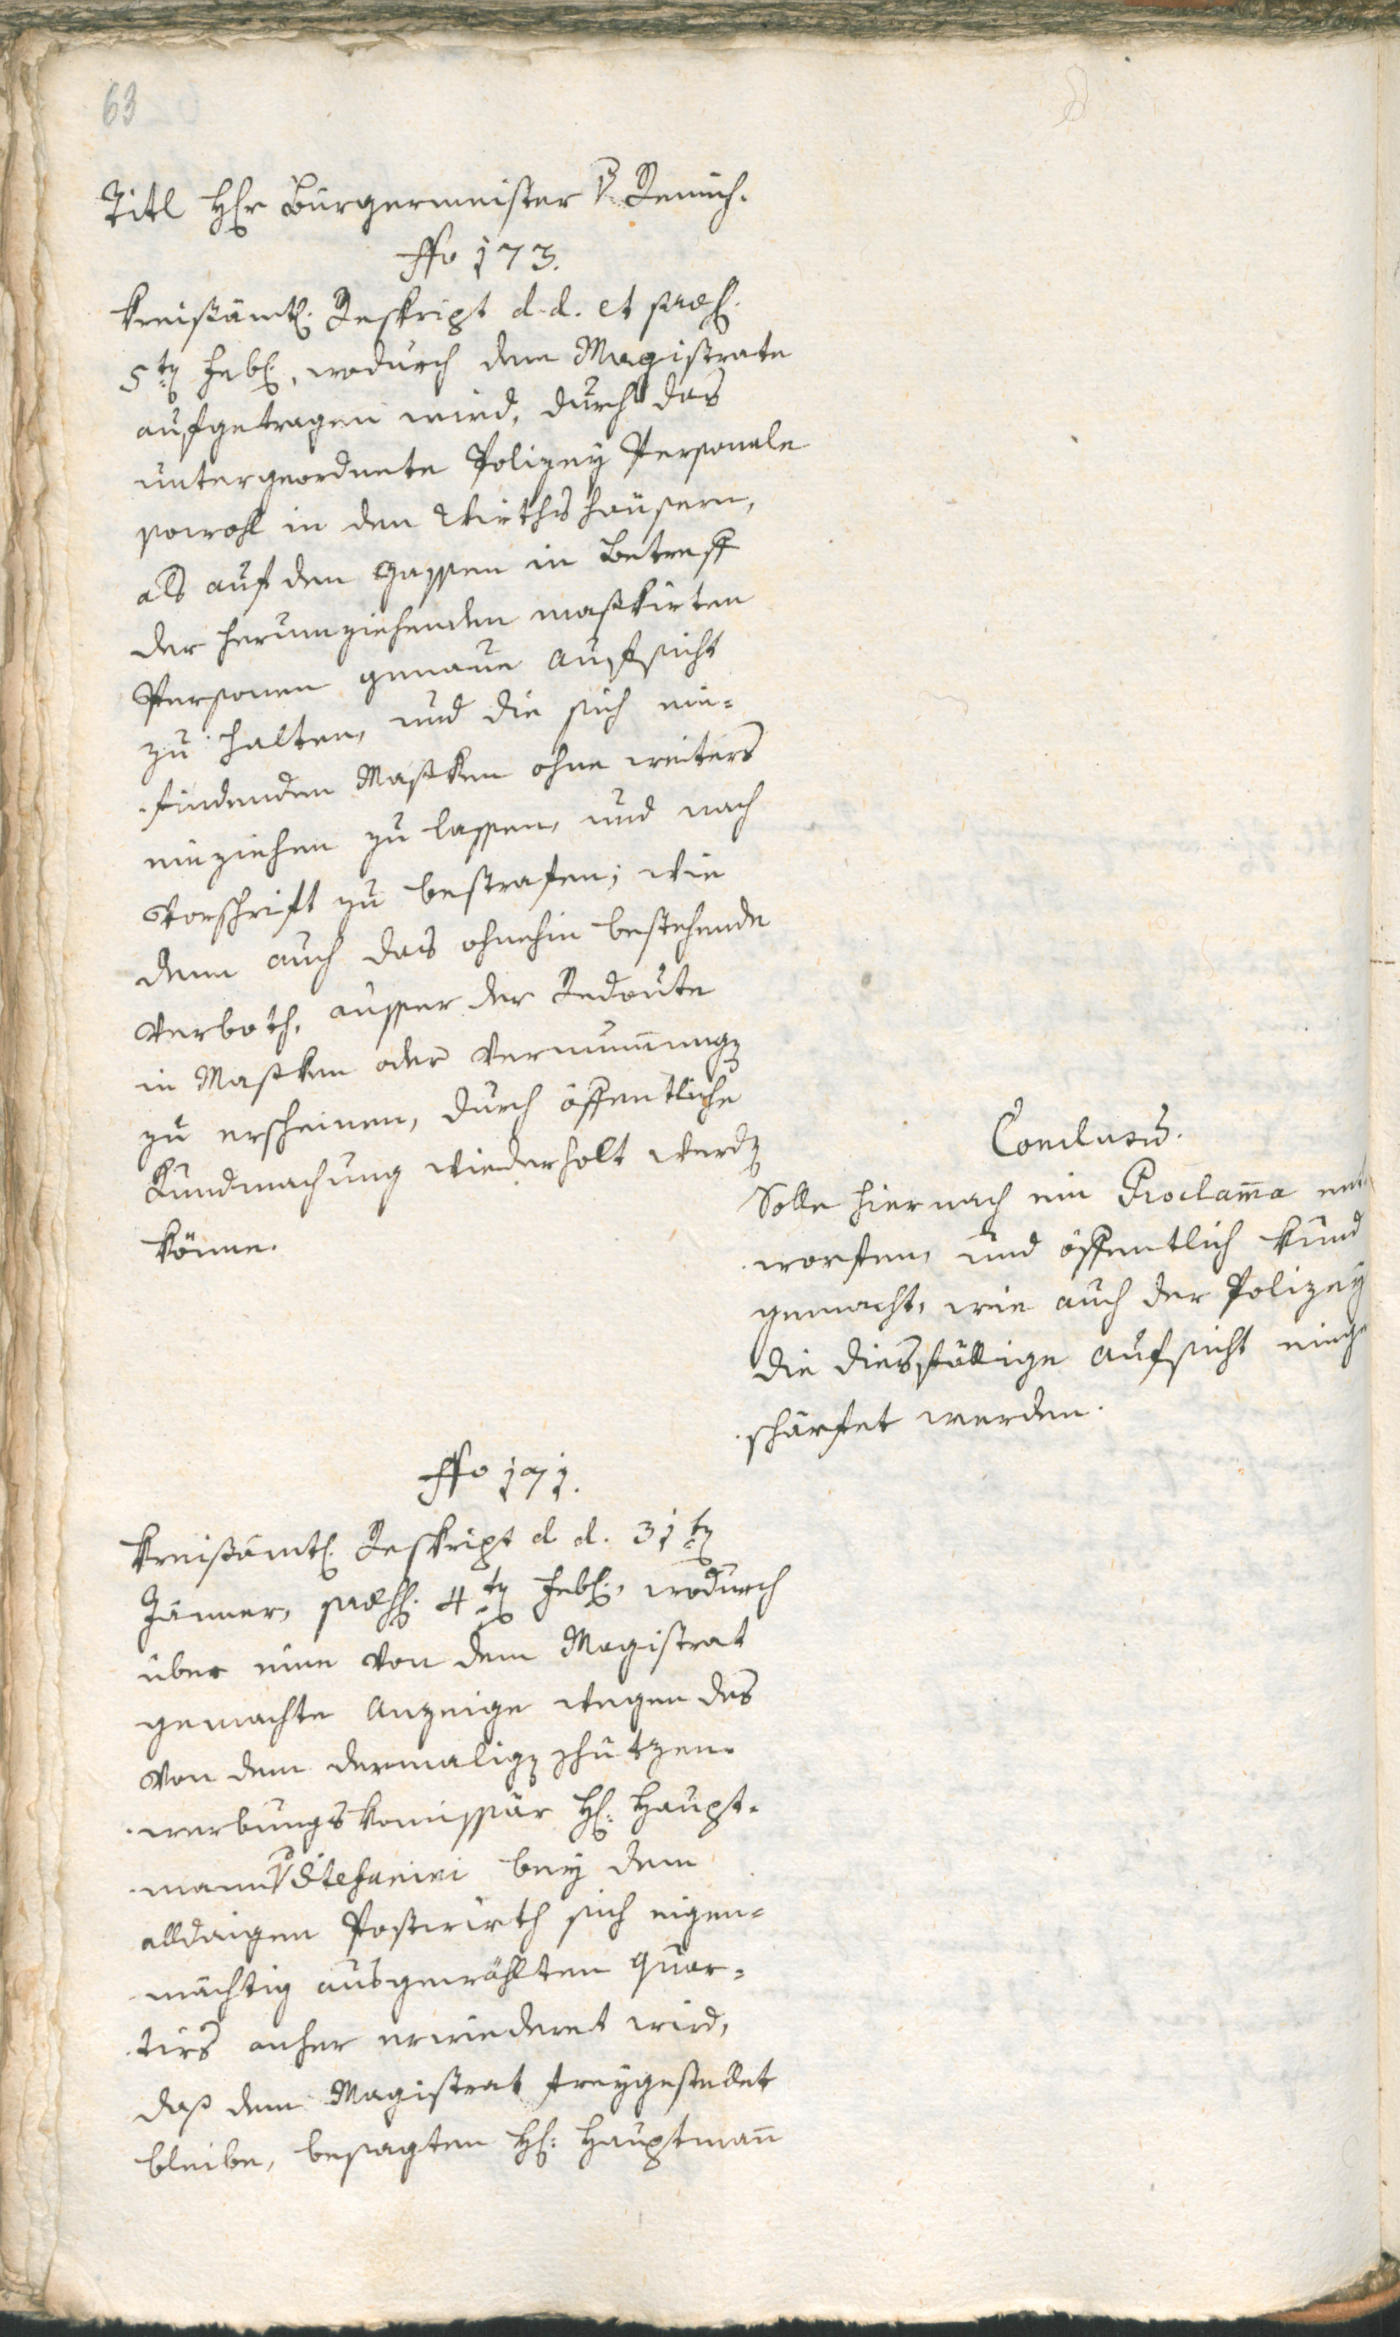 63
Titl Hr Bürgermeister v.
No 173.
Kreißämtl. Reskript d. d. et praes.
5ten Febr., wodurch dem Magistrate
aufgetragen wird, durch das
untergeordnete Polizey Personale
sowohl in den Wirthshäusern,
als auf den Gassen in Betreff
der herumziehenden maskirten
Personen genaue Aufsicht
zu halten, und die sich ein-
findenden Masken ohne weiters
einziehen zu lassen, und nach
Vorschrift zu bestrafen; wie
denn auch das ohnehin bestehende
Verboth, ausser der Redoute
in Masken oder Vermummung
zu erscheinen, durch öffentliche
Kundmachung wiederholt werden
könne.
Conclusum.
Solle hiernach ein Proclama ent
worfen, und öffentlich kund
gemacht, wie auch der Polizey
die diesfällige Aufsicht einge
schärfet werden.
No 171.
Kreißämtl. Reskript d d. 31ten
Jänner, praes. 4ten Febr., wodurch
über eine von dem Magistrat
gemachte Anzeige wegen des
von dem dermaligen Schützen-
werbungs Komissär H. Haupt-
mann v Stefanini bey dem
alldaigen Postwirth sich eigen-
mächtig ausgewählten Quar-
tirs anher erwiederet wird,
daß dem Magistrat freygestellet
bleibe, besagten H. Hauptmann